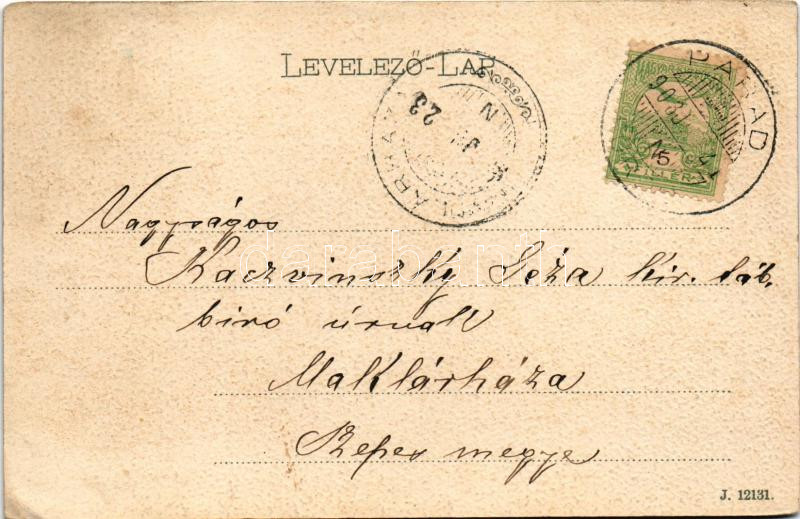 LEVELEZŐ-LAP
PARÁD
5
23
Nagyságos
Kaczvinszky Géza kir. táb.
biró úrnak
Maklárháza
Szepes megye
J. 12131.